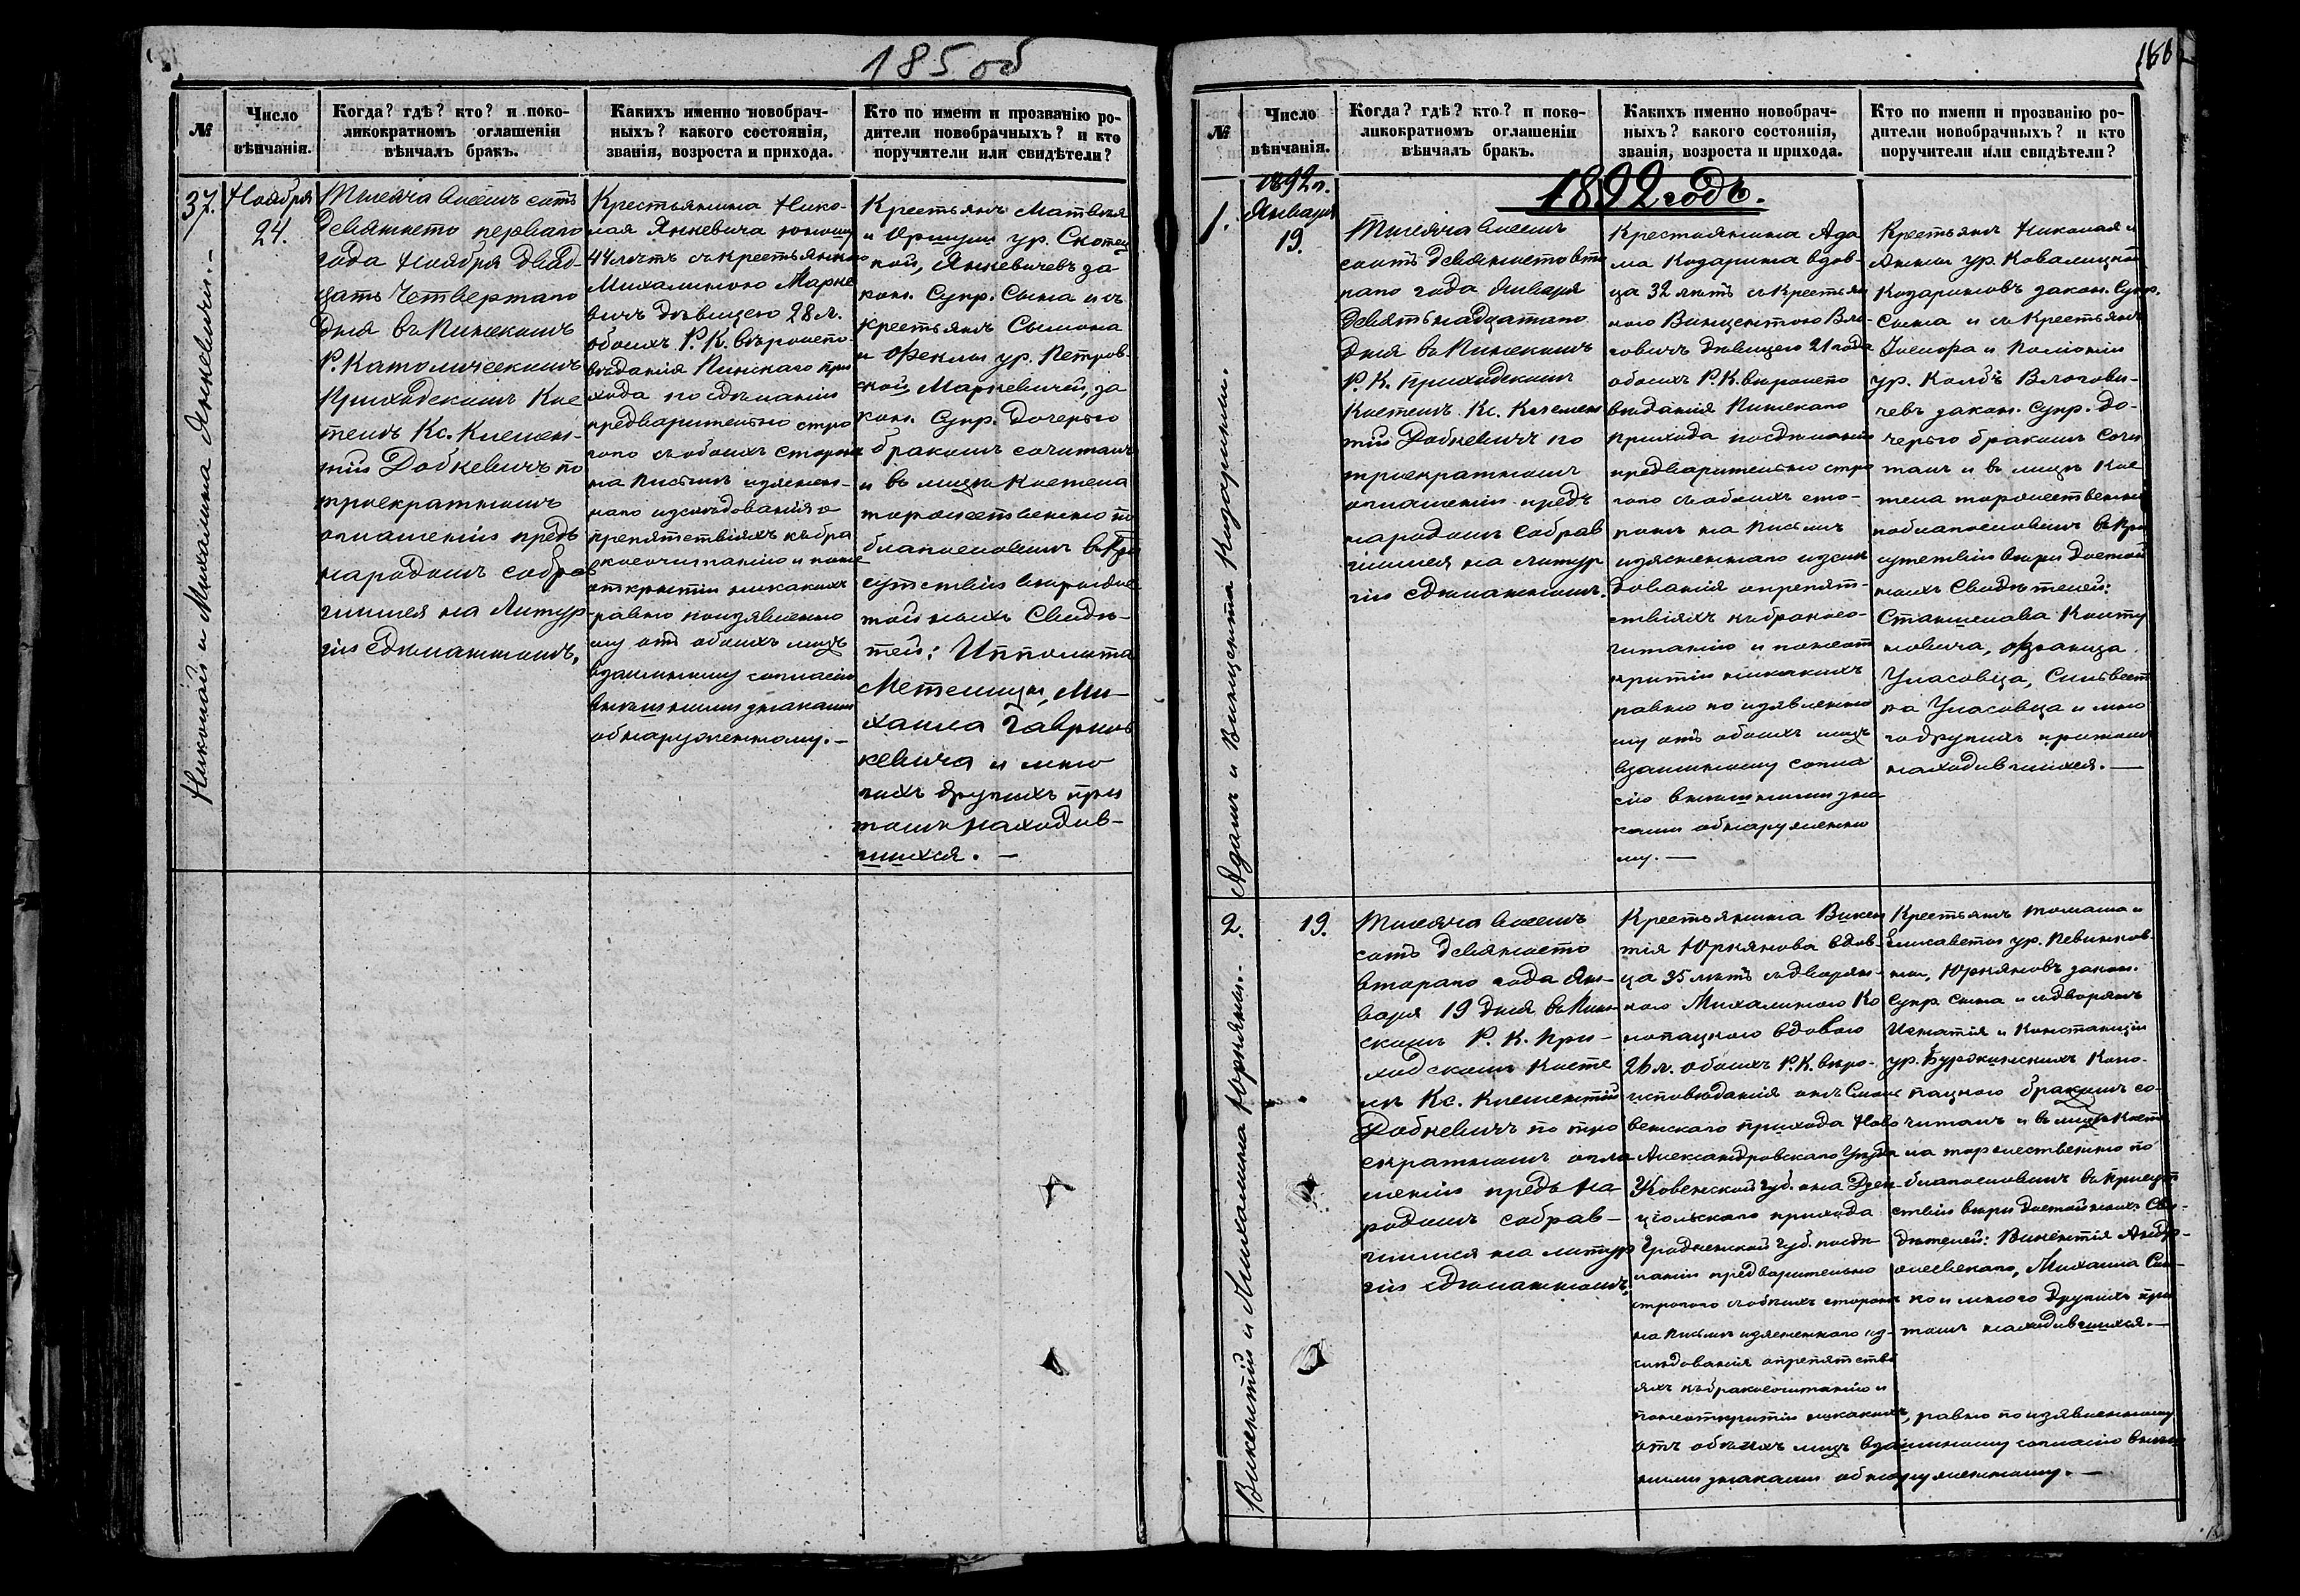 185 об
№
Число
вѣнчанія.
Когда? гдѣ? кто? и поко-
ликократномъ оглашеніи
вѣнчалъ бракъ.
Какихъ именно новобрач-
ныхъ? какого состоянія,
званія, возроста и прихода.
Кто по имени и прозванію ро-
дители новобрачныхъ? и кто
поручители или свидѣтели?
37.
Николай и Михалина Янкевичи.-
Ноября
24.
Тысяча восемь сотъ
девяносто перваго
года Ноября двад-
цать четвертаго
дня въ Пинскомъ
Р. Католическомъ
Приходскомъ Кос
телѣ Кс. Клемен-
тій Добкевичъ по
троекратномъ
оглашеніи предъ
народомъ собрав
шимся на Литур-
гіи сдѣланномъ,
Крестьянина Нико-
лая Янкевича юношу
44 лѣтъ съ крестьянкою
Михалиною Марке
вичъ дѣвицею 28 л.
обоихъ Р. К. вѣроиспо-
вѣданія Пинскаго при
хода по сдѣланіи
предварительно стро
гого съ обоихъ сторонъ
на письмѣ изяснен-
наго изслѣдованія о
препятствіяхъ къ бра
косочитанію и поне
открытіи никакихъ
равно по изявленно
му отъ обоихъ лицъ
взаимному согласію
внѣшними знаками
обнаруженному.-
Крестьянъ Матвѣя
и Оршули ур. Скотец
кой, Янкевичевъ за
кон. Супр. Сына и съ
крестьянъ Сымона
и Феклы ур. Петров
ской Маркевичей, за
кон. Супр. Дочерью
бракомъ сочиталъ
и въ лицѣ Костела
торжественно по
благословилъ въ При
сутствіи вѣродос
тойныхъ Свидѣ-
телей: Ипполита
Метелицы, Ми-
хаила Гаврил
кевича и мно
гихъ другихъ при
томъ находив-
шихся. -
186
№
Число
вѣнчанія.
Когда? гдѣ? кто? и поко-
ликократномъ оглашеніи
вѣнчалъ бракъ.
Какихъ именно новобрач-
ныхъ? какого состоянія,
званія, возроста и прихода.
Кто по имени и прозванію ро-
дители новобрачныхъ? и кто
поручители или свидѣтели?
1892 годъ.
1.
Адамъ и Винцента Козарины.
1892 г.
Января
19.
Тысяча восемь
сотъ девяносто вто
раго года Января
девятьнадцатаго
дня въ Пинскомъ
Р. К. Приходскомъ
Костелѣ Кс. Клемен
тій Добкевичъ по
троекратномъ
оглашеніи предъ
народомъ собрав
шимся на литур
гіи сдѣланномъ.
Крестьянина Ада
ма Козарина вдов-
ца 32 лѣтъ съ Крестьян
кою Винцентою Вло-
совичъ дѣвицею 21 года
обоихъ Р. К. вѣроиспо
вѣданія Пинскаго
прихода по сдѣланіи
предварительно стро
гого съ обоихъ сто-
ронъ на письмѣ
изясненнаго изслѣ
дованія о препят-
ствіяхъ къ бракосо-
читанію и понеот
крытіи никакихъ
равно по изявленно
му отъ обоихъ лицъ
взаимному согла
сію внѣшними зна
ками обнаруженно
му.-
Крестьянъ Николая и
Анны ур. Ковалицкой
Козариновъ закон. Супр.
Сына и съ Крестьянъ
Іосифа и Полоніи
ур. Колбъ Влосови-
чевъ закон. Супр. До-
черью бракомъ сочи
талъ и въ лицѣ Кос
тела торжественно
поблагословилъ въ При
сутствіи вѣродостой
ныхъ Свидѣтелей:
Станислава Колту
новича, Франца
Уласовца, Сильвест
ра Уласовца и мно
го другихъ притомъ
находившихся.-
2.
Викентій и Михалина Юркяны.-
19.
Тысяча восемь
сотъ девяносто
втораго года Ян-
варя 19 дня въ Пин-
скомъ Р. К. При-
ходскомъ Косте
лѣ Кс. Клементій
Добкевичъ по трое
кратномъ огла
шеніи предъ на
родомъ собрав-
шимся на литур
гіи сдѣланномъ,
Крестьянина Викен
тія Юркянова вдов-
ца 35 лѣтъ съ дворян-
кою Михалиною Ко
нопацкою вдовою
26 л. обоихъ Р. К. вѣро-
исповѣданія онъ
венскаго прихода Ново
Александровскаго Уѣзда
Ковенской Губ. она Дзен-
ціольскаго прихода
Гродненской Губ. по сдѣ-
ланіи предварительно
строгого съ обоихъ сторонъ
на письмѣ изясненнаго из-
слѣдованія о препятстві
яхъ къ бракосочитанію и
понеоткрытіи никакихъ, равно по изявленному
отъ обоихъ лицъ взаимному согласію внѣш
ними знаками обнаруженному.-
Крестьянъ Томаша и
Елисаветы ур. Левинков-
ны, Юркяновъ закон.
Супр. сына и съ дворянъ
Игнатія и Констанціи
ур. Бурджинскихъ Коно-
пацкою бракомъ со-
читалъ и въ лицѣ Косте
ла торжественно по
благословилъ въ Присут
ствіи вѣродостойныхъ Сви-
дѣтелей: Викентія Андр-
жеевскаго, Михаила Сен-
ко и много другихъ при
томъ находившихся.-